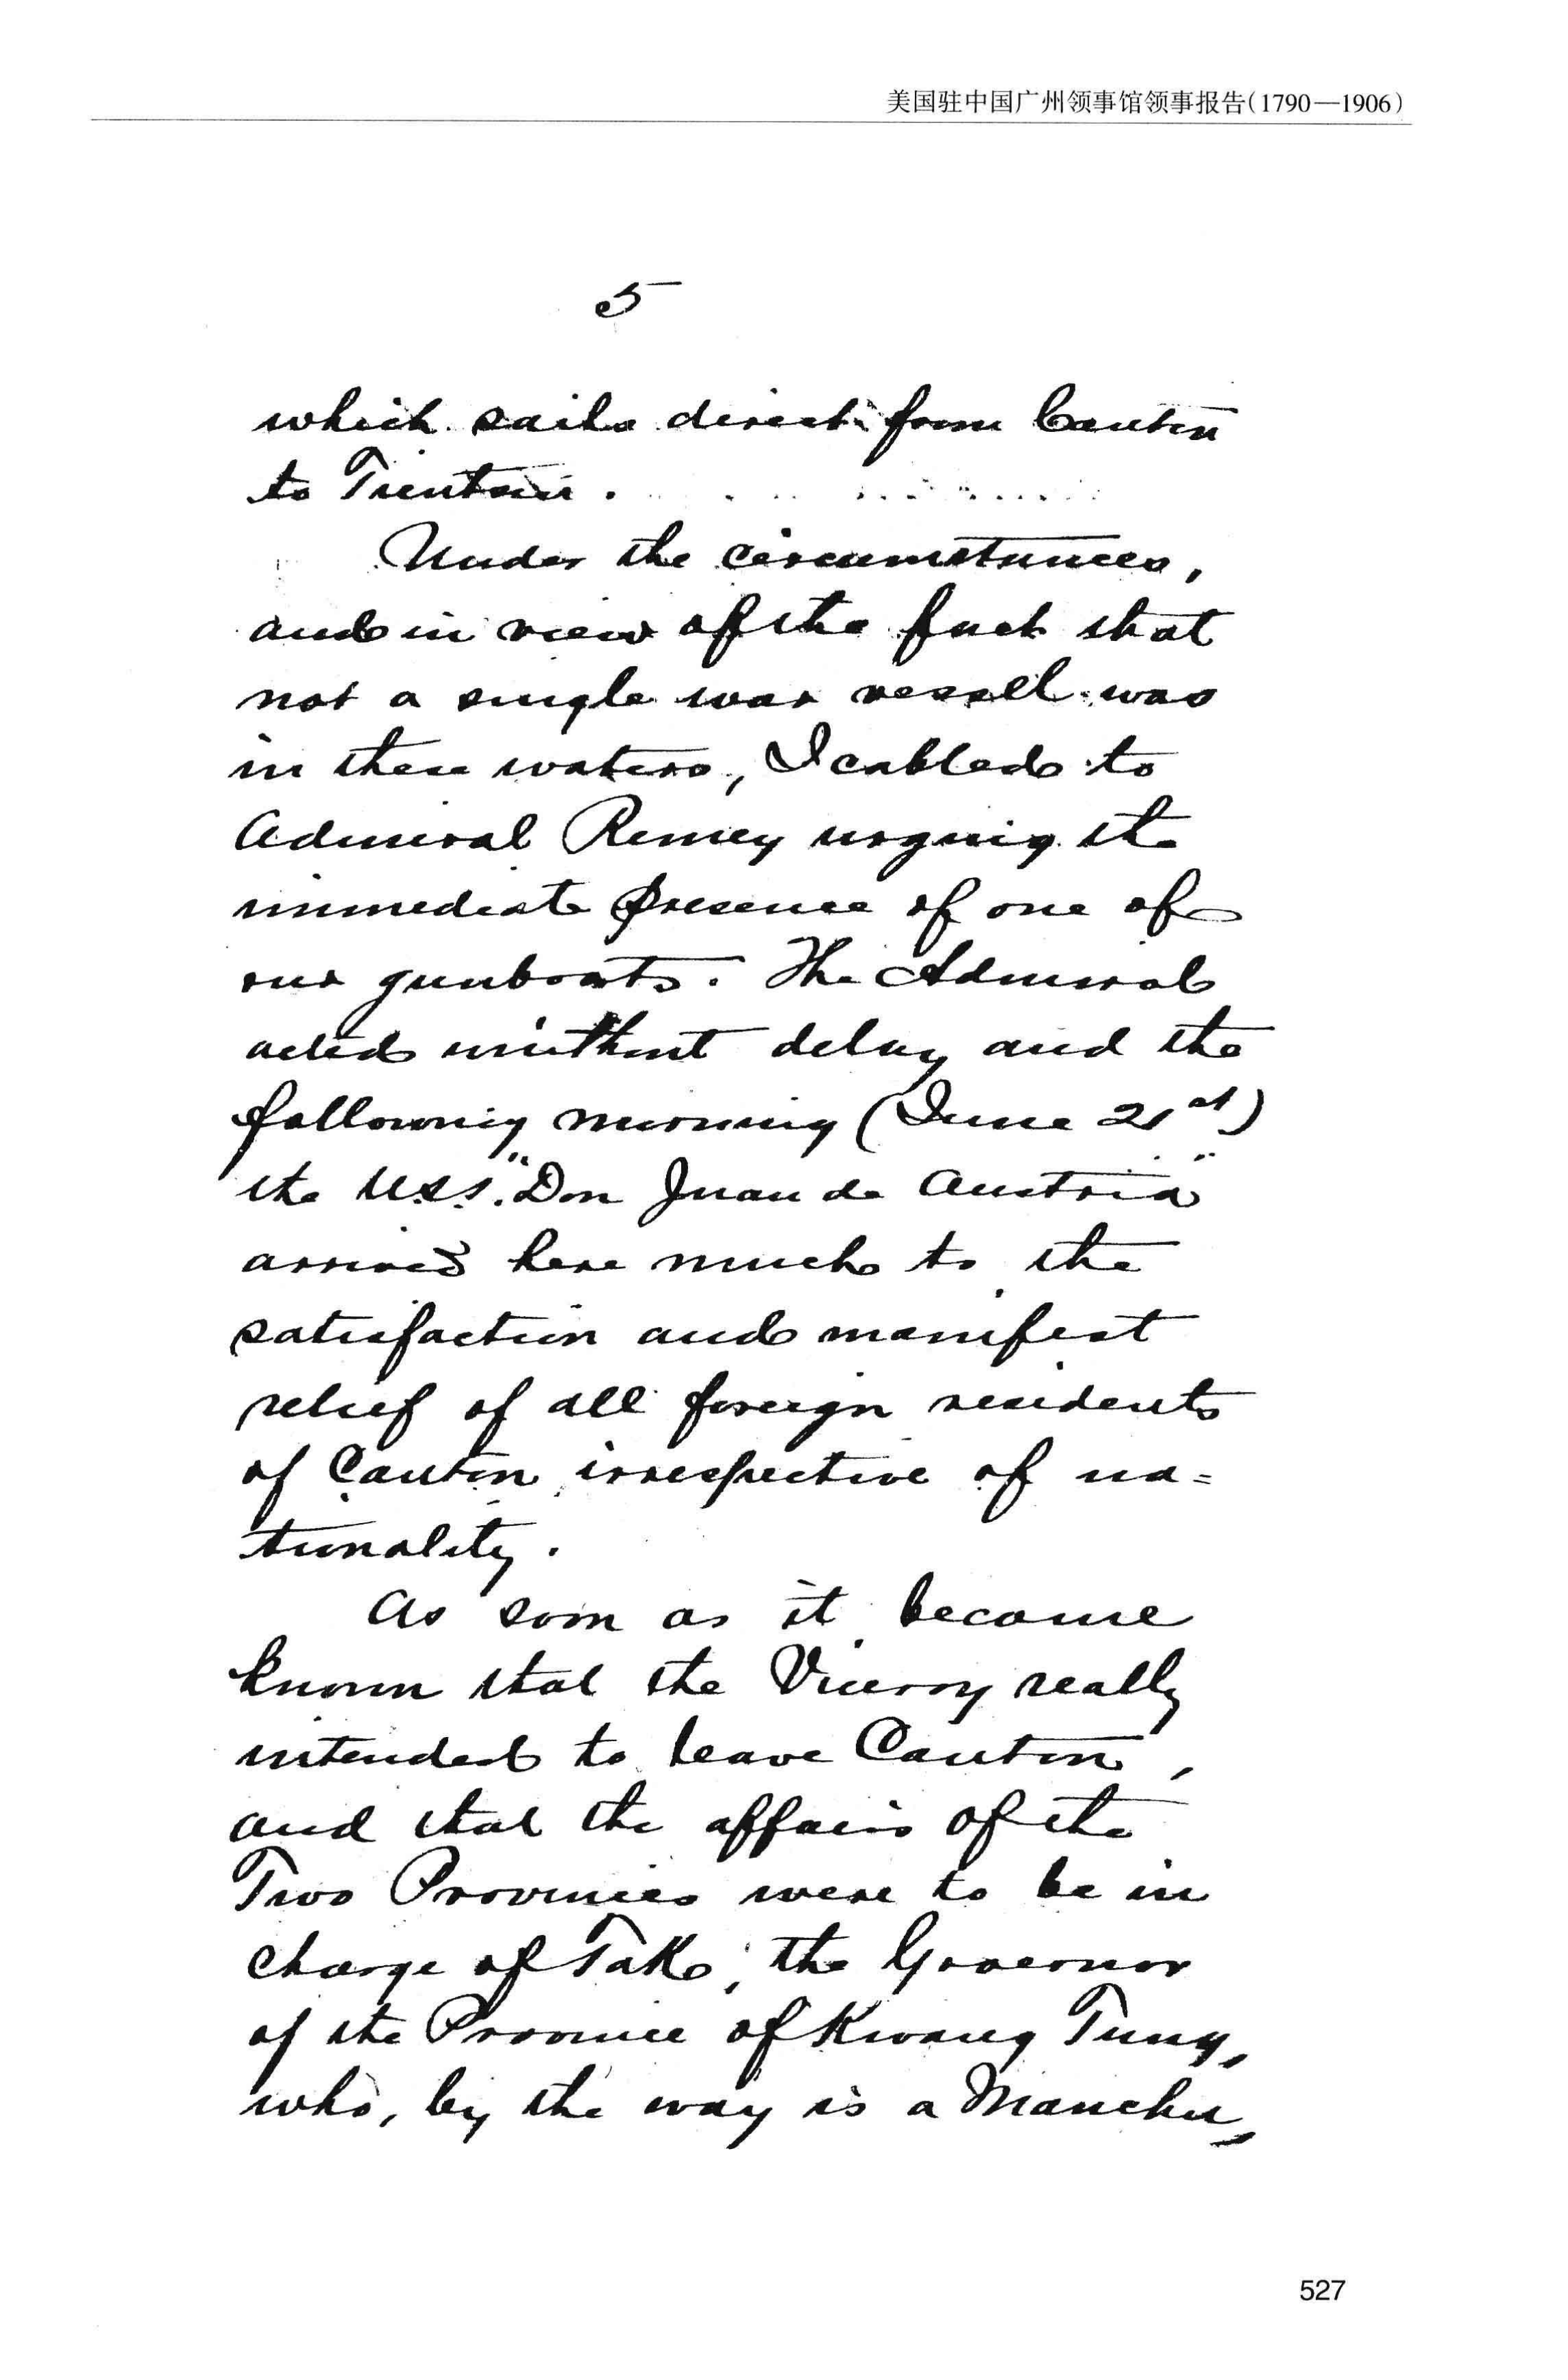 美国驻中国广州领事馆领事报告(1790—1906)
5
which sails direct from Canton
to Tientsin.
Under the circumstances,
and in view of the fact that
not a single war vessel was
in these waters, I cabled to
Admiral Remey urging the
immediate presence of one of
our gunboats. The Admiral
acted without delay and the
following morning (June 21st)
the U.S.S. "Don Juan de Austria"
arrived here much to the
satisfaction and manifest
relief of all foreign residents
of Canton irrespective of na=
tionality.
As soon as it became
known that the Viceroy really
intended to leave Canton,
and that the affairs of the
Two Provinces were to be in
charge of Tak, the Governor
of the Province of Kwang Tung,
who, by the way is a Manchu,
527